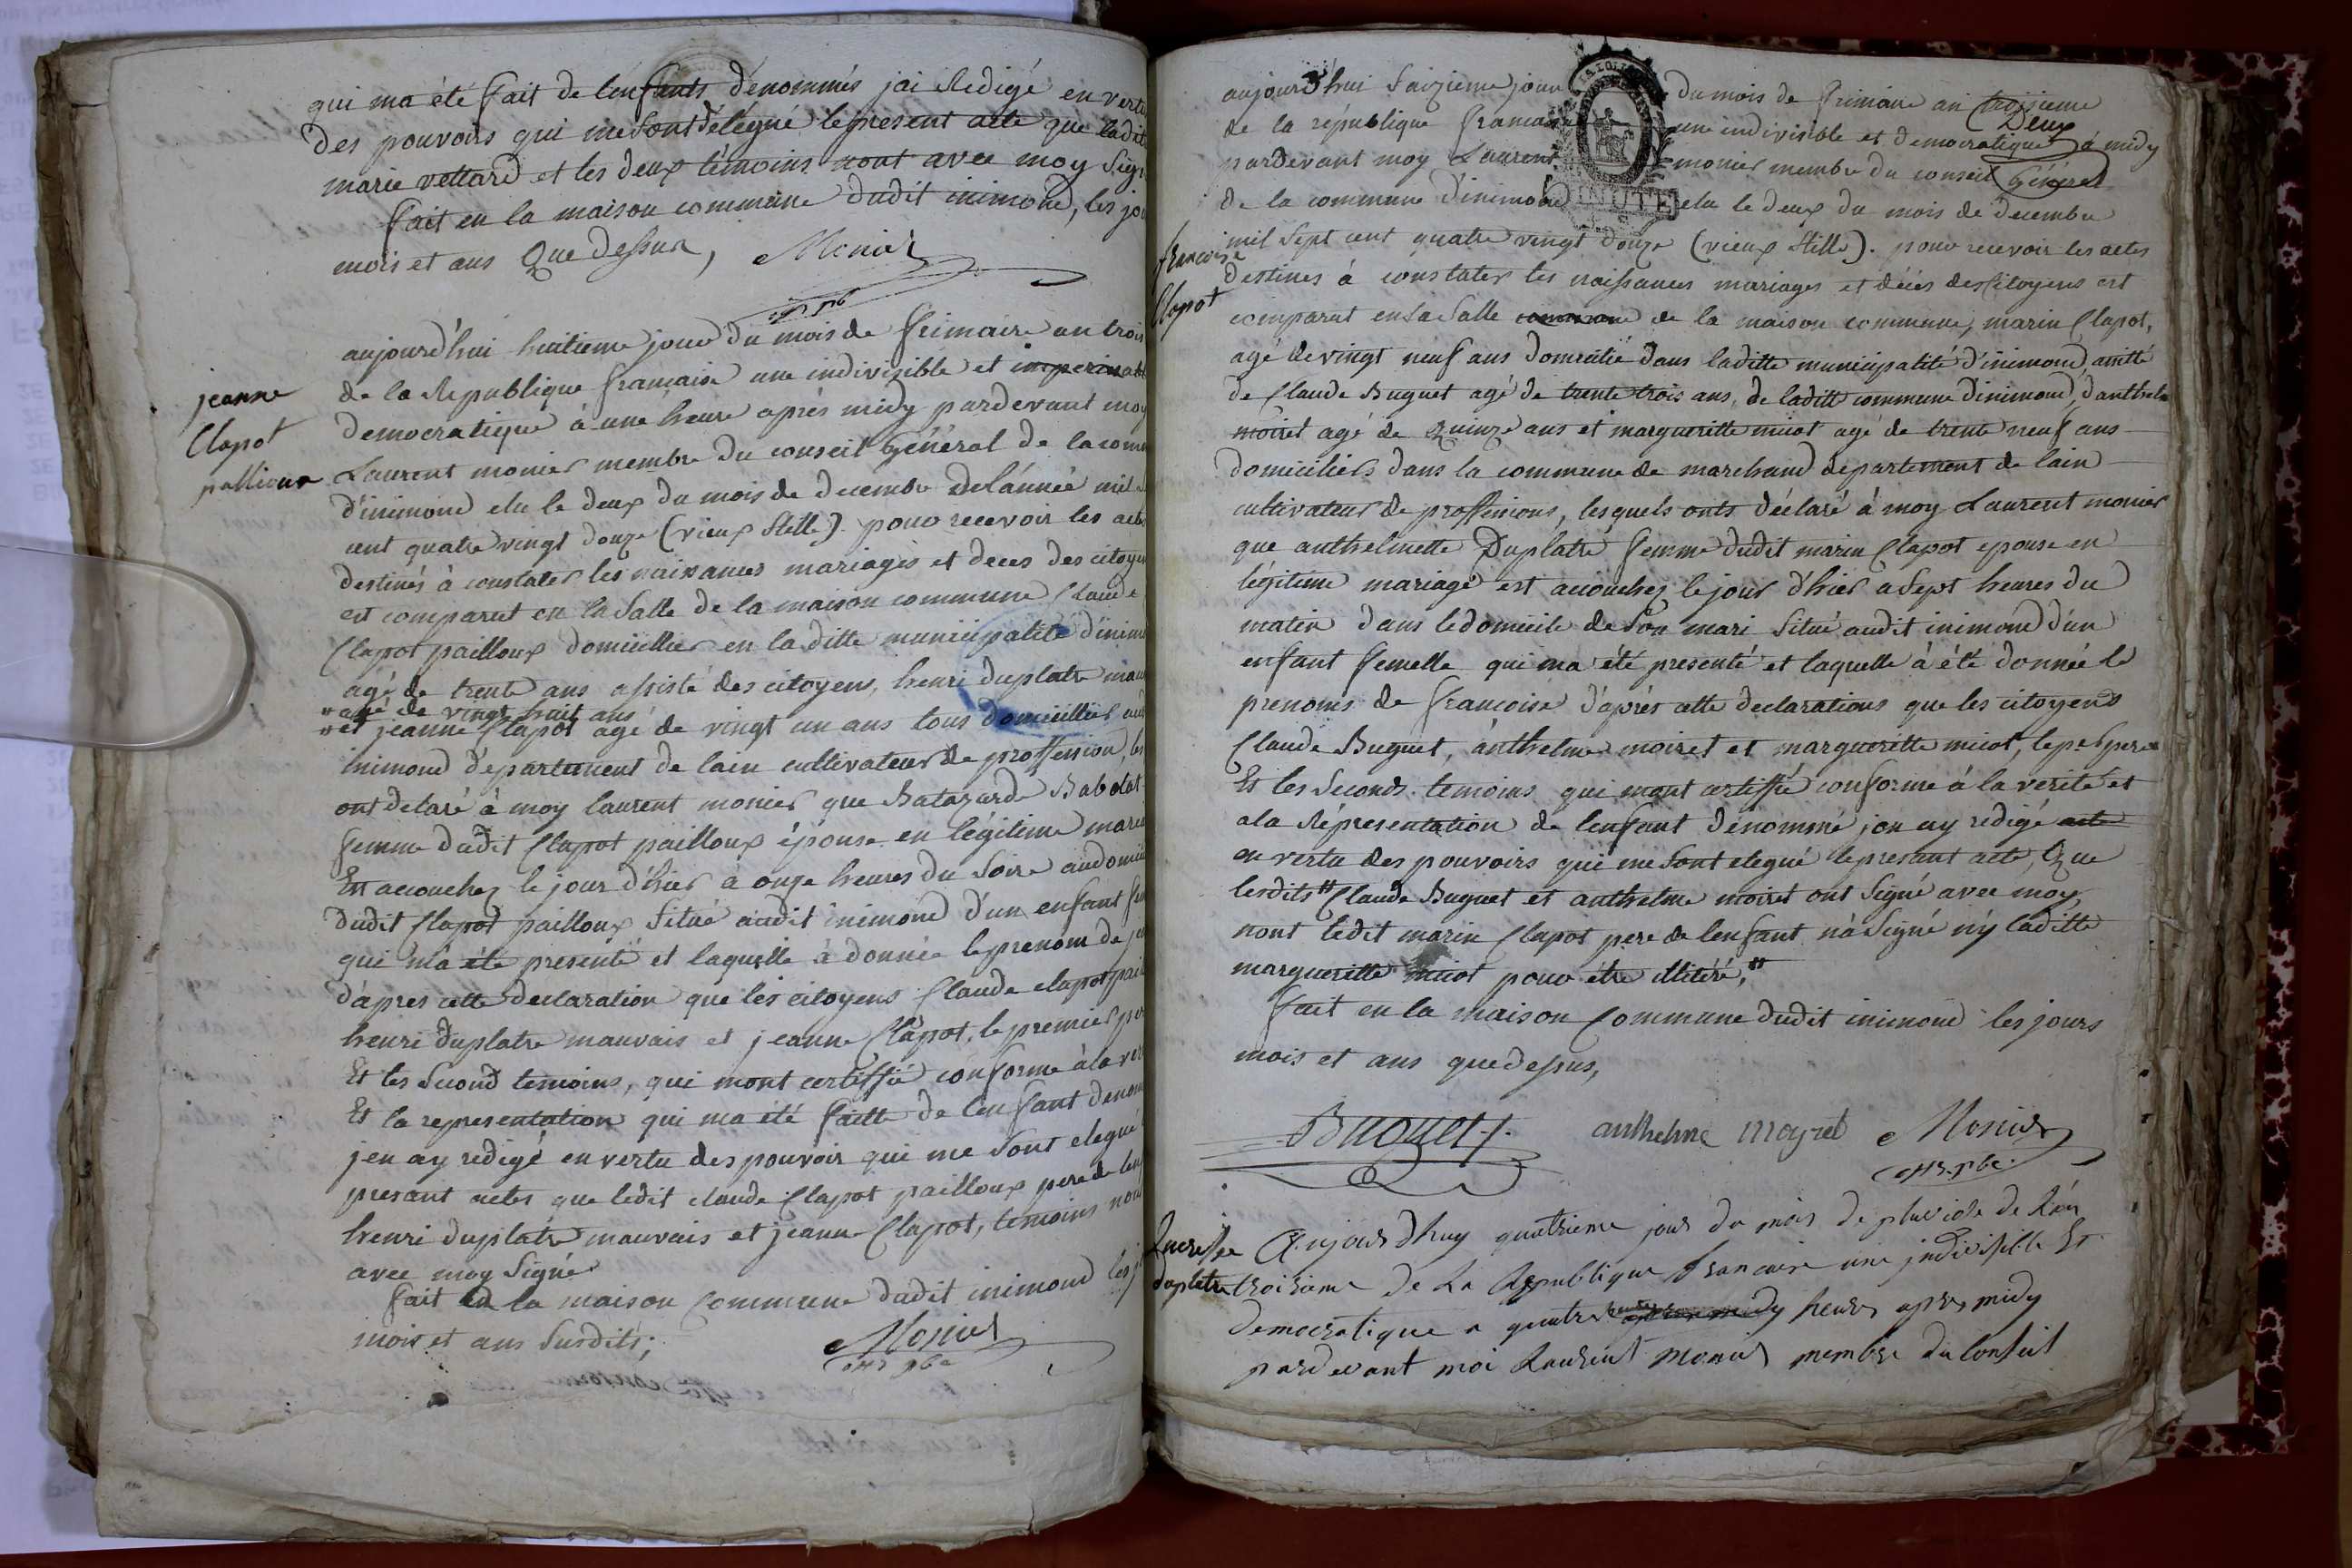 qui ma été fait de lenfants denommés jai Redigé en vertu
Des pouvoirs qui me sont délégué le present acte que ladit
marie vettard et les deux témoins nont avec moy Sign
fait en la maison commune dudit inimond, les jo
mois et ans Que dessus, Monier
off. pbc
jeanne
Clapot
pallioux
aujourd'hui huitieme jour du mois de frimaire an trois
de la Republique francaise une indivisible et
democratique à une heure aprés midy pardevant moy
Laurent monier membre du conseil général de la com
d'inimond elu le deux du mois de decembre de lánnée mil
cent quatre vingt douze (vieux stille). pour recevoir les acte
destinés à constater les naissances mariages et deces des citoye
est comparut en la Salle de la maison commune Claude
Clapot pailloux domicillier en la ditte municipalité d'inim
agé de trente ans assisté des citoyens, henri duplatre mau
"agé de vingt huit ans
"et jeanne Clapot agé de vingt un ans tous domicilliés aud
inimond departement de lain cultivateur de proffession, le
ont delaré à moy laurent monier que Batazarde Babolat
femme dudit Clapot pailloux épouse en légitime maria
Est accouchez le jour d'hier à onze heures du Soire audomici
dudit Clapot pailloux Situé audit inimond d'un enfant fe
qui m'a été presenté et laquelle à donnée le prenom de je
d'apres cette declaration que les citoyens Claude clapot pail
henri duplatre mauvais et jeanne Clapot, le premier pe
Et les Second temoins, qui mont certiffié conforme à la ver
Et la representation qui ma été faitte de l'enfant denom
jen ay redigé en vertu des pouvoir qui me sont elegué
presant actes que ledit claude Clapot pailloux pere de len
henri duplatre mauvais et jeanne Clapot, temoins nont
avec moy Signé
fait en la maison Commune dudit inimond les j
mois et ans Susdits;
Monier
off. pbc
MINUTE
francoise
Clapot
aujourd'hui Saizieme jour du mois de frimaire an troisieme
de la république francaise une indivisible et democratique à midy
Deux
pardevant moy Laurent monier membre du conseil Général
de la commune d'inimond elu le deux du mois de decembre
mil Sept cent quatre vingt douze (vieux Stille). pour recevoir les actes
destinés à constater les naissances mariages et décès des Citoyens est
comparut en la Salle commune de la maison commune, marin Clapot,
agé de vingt neuf ans domicilié dans laditte municipalité d'inimond, asisté
de Claude Buguet agé de trente trois ans, de laditt commune d'inimond, d'anthelme
moiret agé de Quinze ans et margueritte micot agé de trente neuf ans
domiciliers dans la commune de marchand departement de lain
cultivateur de proffessions, lesquels onts déclaré à moy Laurent monier
que anthelmette Duplâtré femme dudit marin Clapot epouse en
légitime mariage est accouchez le jour d'hier a Sept heures du
matin dans le domicile de Son mari Situé audit inimond d'un
enfant femelle qui ma été presenté et laquelle à été donnée le
prenoms de francoise d'aprés cette declarations que les citoyens
Claude Buguet, ánthelme moiret et margueritte micot, le
Et les Seconds temoins qui mont certiffié conforme à la verité et
a la Représentation de lenfant denommé jen ay redigé acte
en vertu des pouvoirs qui me sont elegué le presant acte, Que
lesdits" Claude Buguet et anthelme moiret ont Signé avec moy,
nont ledit marin Clapot pere de lenfant n'à Signé ny laditte
margueritte micot pour étre illitéré,"
fait en la maison Commune dudit inimond les jours
mois et ans que dessus,
Buguet anthelme moyret Monier
off. pbc.
Lucresse
duplatre
Aujourdhuy quatrieme jour du mois de pluviose de Lán
troisieme de La Republique francaise une jndivisible Et
democratique a quatre heures apres midy
pardevant moi Laurent Monier membre du Conseil